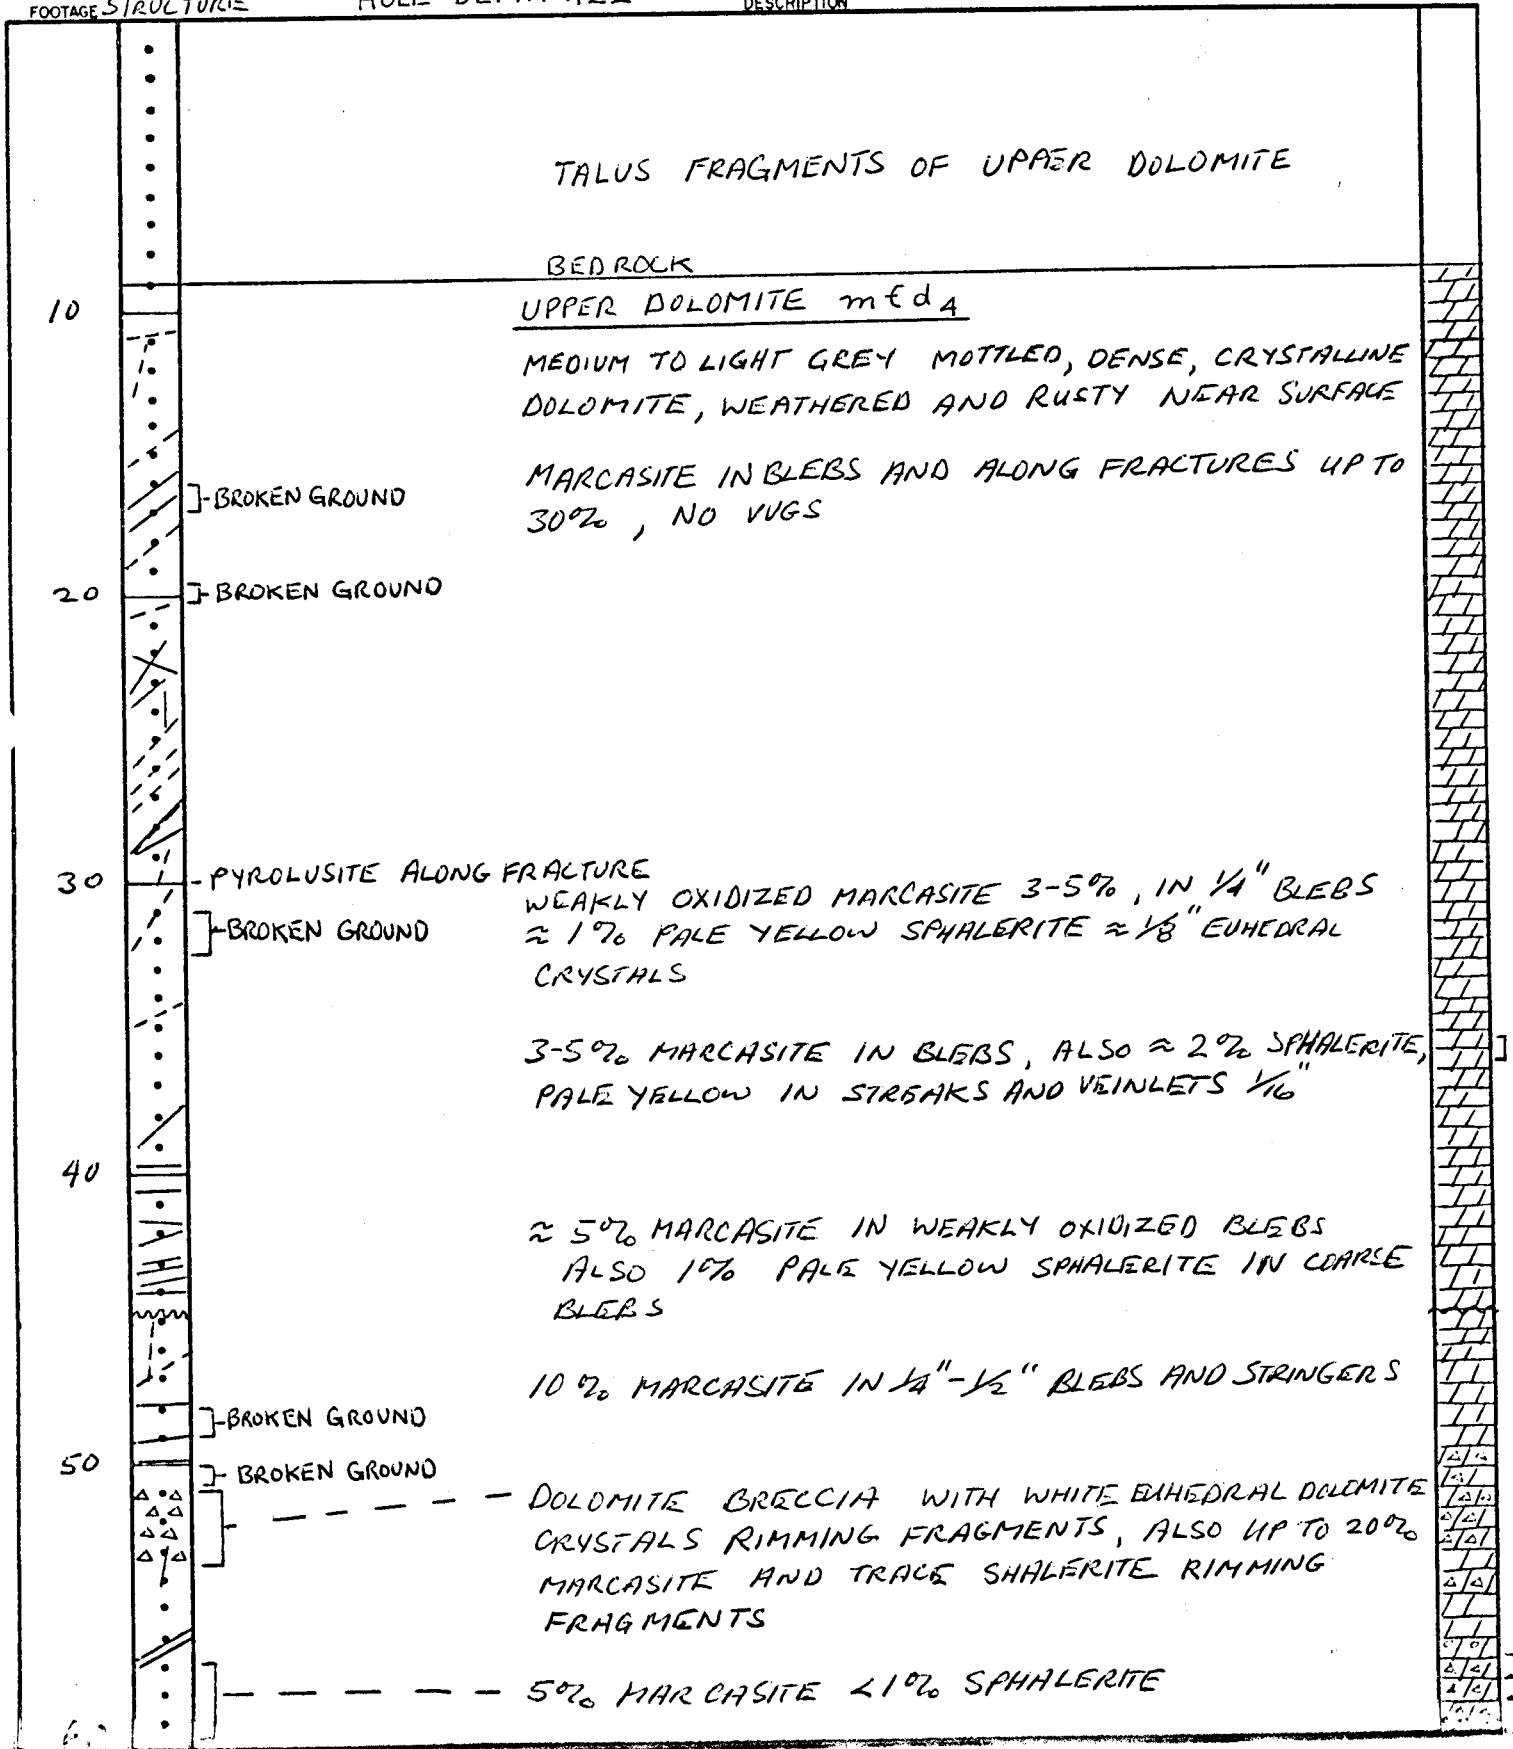 FOOTAGE STRUCTURE HOLE DEPTH 422 DESCRIPTION
TALUS FRAGMENTS OF UPPER DOLOMITE
BEDROCK
10
UPPER DOLOMITE m€d4
MEDIUM TO LIGHT GREY MOTTLED, DENSE, CRYSTALLINE
DOLOMITE, WEATHERED AND RUSTY NEAR SURFACE
MARCASITE IN BLEBS AND ALONG FRACTURES UP TO
30%, NO VUGS
BROKEN GROUND
20
BROKEN GROUND
30
PYROLUSITE ALONG FRACTURE
WEAKLY OXIDIZED MARCASITE 3-5%, IN 1/4" BLEBS
≈ 1% PALE YELLOW SPHALERITE ≈ 1/8" EUHEDRAL
CRYSTALS
BROKEN GROUND
3-5% MARCASITE IN BLEBS, ALSO ≈ 2% SPHALERITE,
PALE YELLOW IN STREAKS AND VEINLETS 1/16"
40
≈ 5% MARCASITE IN WEAKLY OXIDIZED BLEBS
ALSO 1% PALE YELLOW SPHALERITE IN COARSE
BLEBS
10% MARCASITE IN 1/4"-1/2" BLEBS AND STRINGERS
BROKEN GROUND
50
BROKEN GROUND
DOLOMITE BRECCIA WITH WHITE EUHEDRAL DOLOMITE
CRYSTALS RIMMING FRAGMENTS, ALSO UP TO 20%
MARCASITE AND TRACE SHALERITE RIMMING
FRAGMENTS
5% MARCASITE <1% SPHALERITE